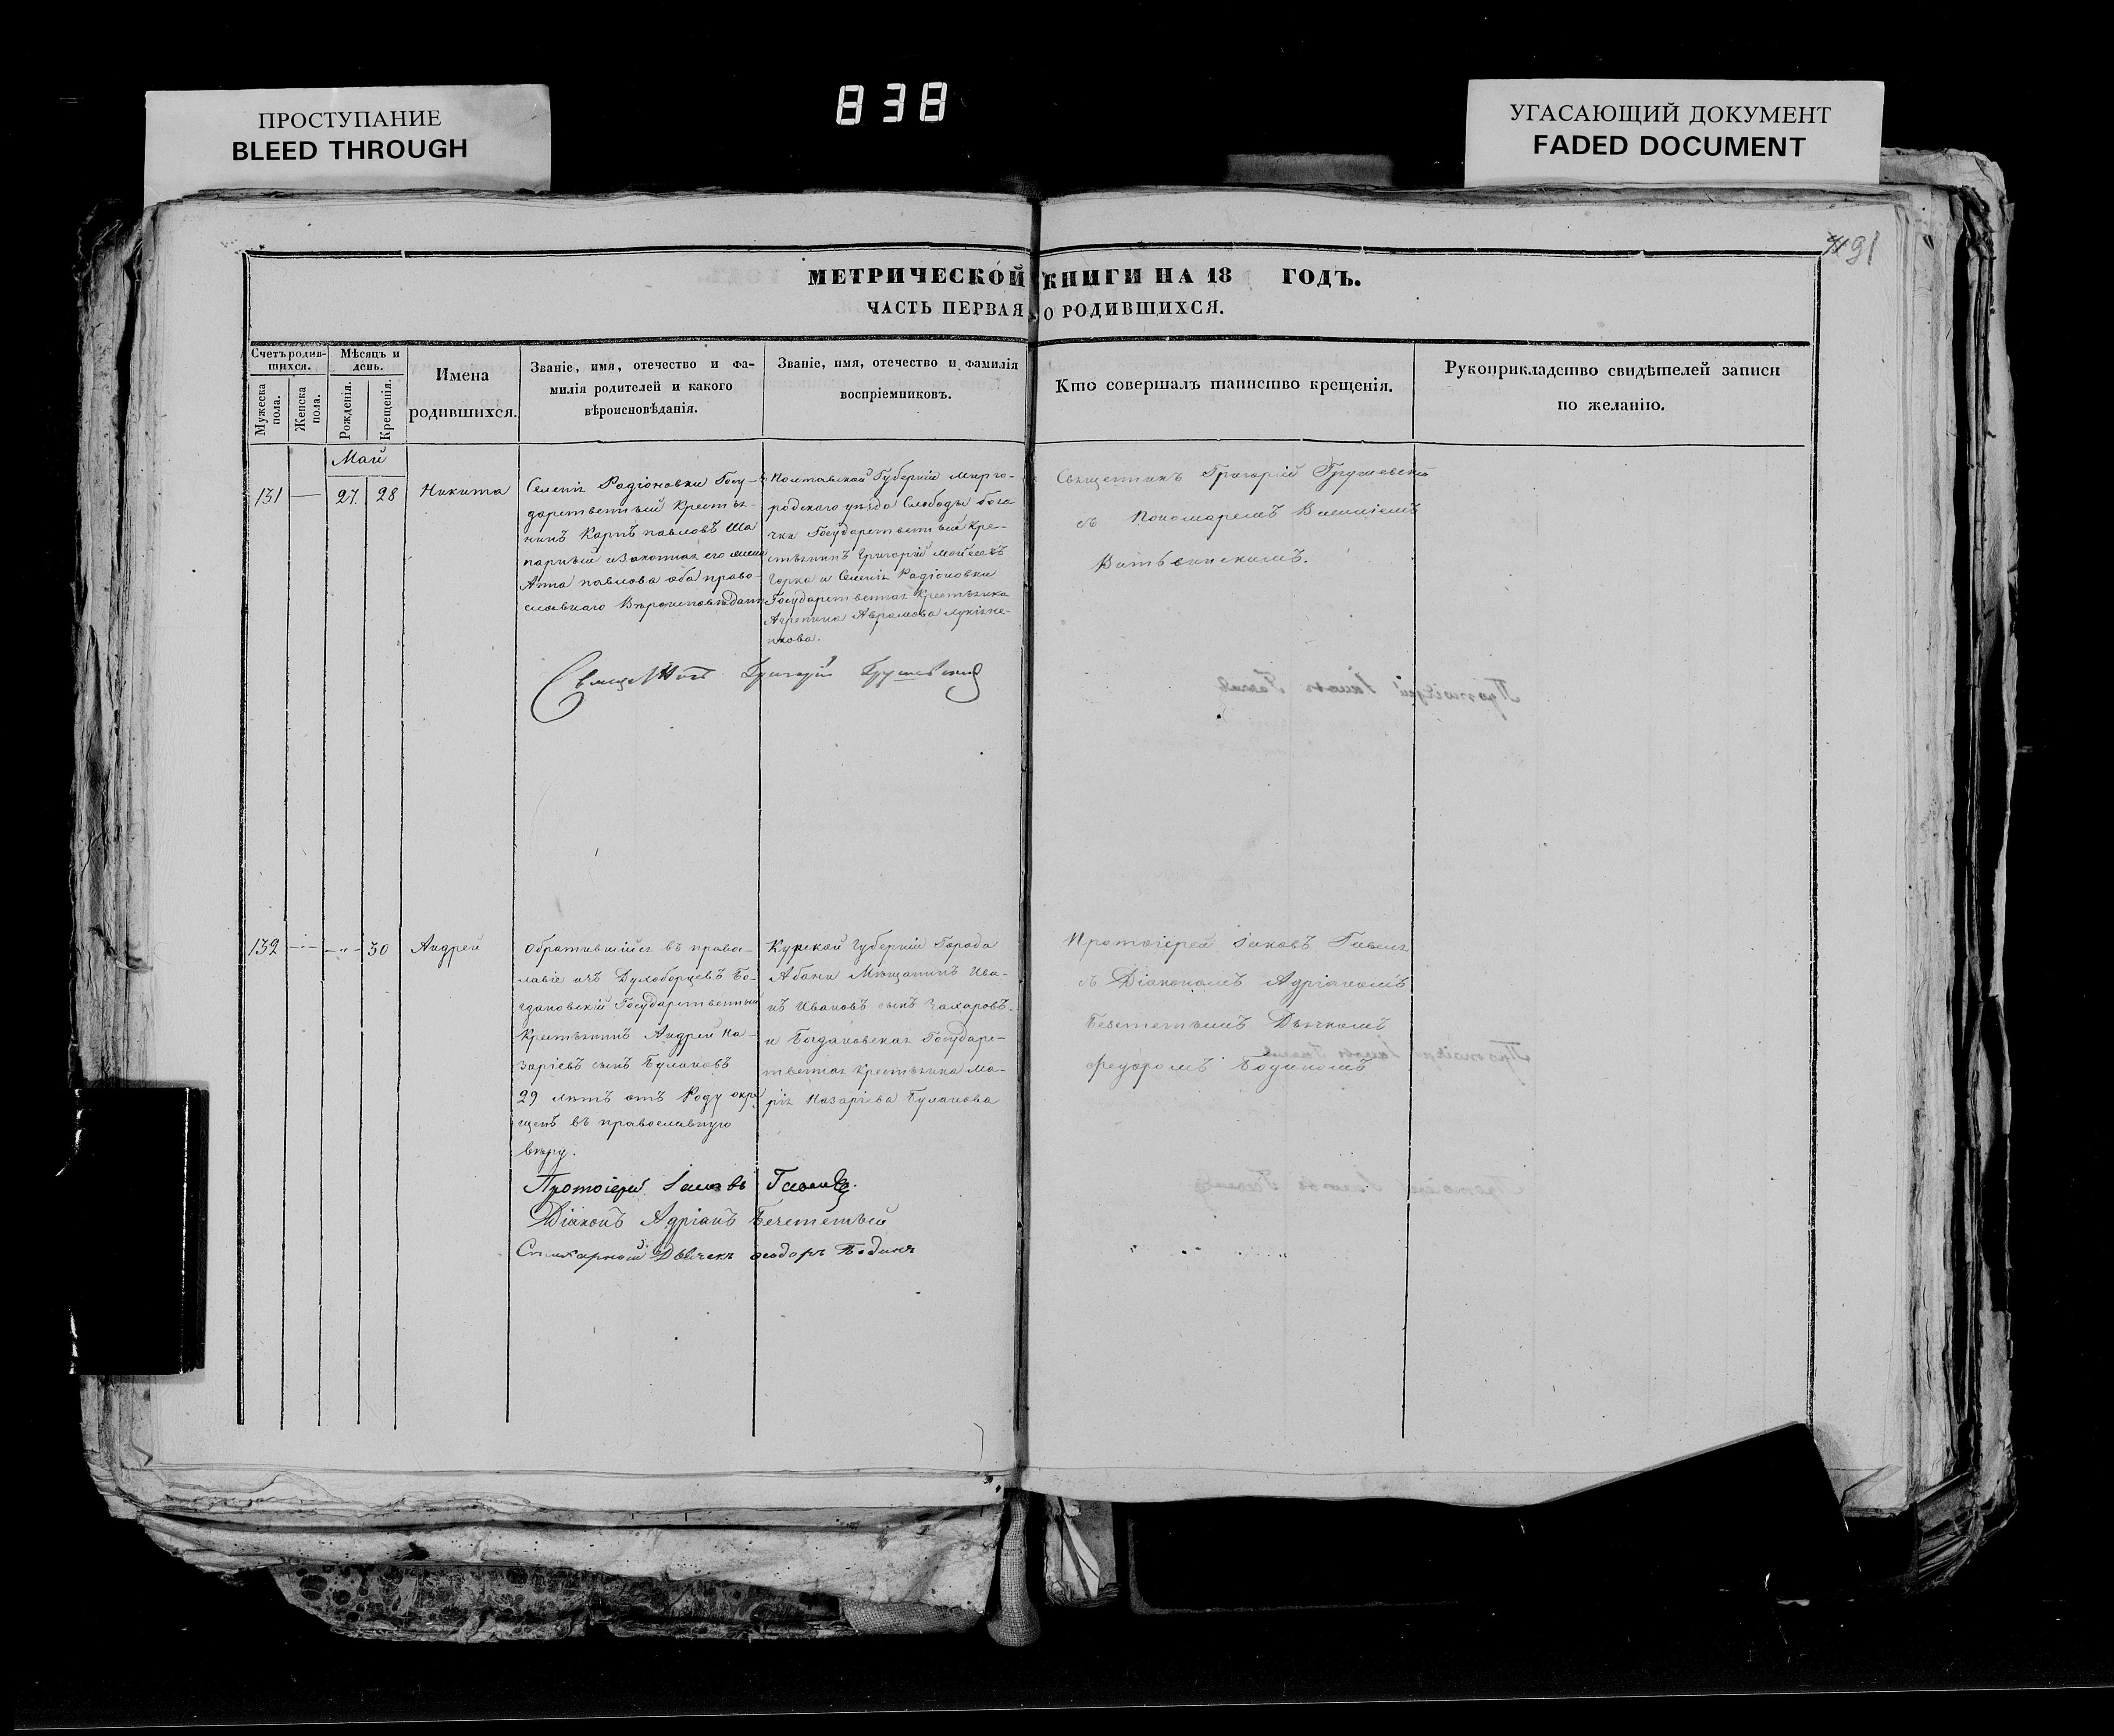 ПРОСТУПАНИЕ
BLEED THROUGH
838
УГАСАЮЩИЙ ДОКУМЕНТ
FADED DOCUMENT
91
МЕТРИЧЕСКОЙ КНИГИ НА 18 ГОДЪ.
ЧАСТЬ ПЕРВАЯ О РОДИВШИХСЯ.
Счетъ родив-
шихся.
Мужеска
пола.
Женска
пола.
Мѣсяцъ и
день.
Рожденія.
Крещенія.
Имена
родившихся.
Званіе, имя, отечество и фа-
милія родителей и какого
вѣроисповѣданія.
Званіе, имя, отечество и фамилія
воспріемниковъ.
Кто совершалъ таинство крещенія.
Рукоприкладство свидѣтелей записи
по желанію.
Май
131 — 27. 28 Никита
Селенія Радіоновки Госу-
дарственный Крестья-
нинъ Карпъ павловъ Ша
парный и Законная его жена
Анна павлова оба право-
славнаго Вѣроисповѣданія
Полтавской Губерніи Мирго-
родскаго уѣзда Слободы бога
чки Государственный Кре-
стьянинъ Григорій
Горка и Селенія Радіоновки
Государственная Крестьянка
Агрепина Аврамова
Священникъ Григорій Грушевскій
съ Пономаремъ Василіемъ
Григорій Грушевскій
132 — „ 30 Андрей
Обратившійся въ право-
славіе изъ Духоборцевъ Бо-
гдановскій Государственный
Крестьянинъ Андрей На-
заріевъ сынъ Булановъ
29 лѣтъ отъ Роду окре
щенъ въ православную
вѣру.
Курской Губерніи Города
Абани Мѣщанинъ Ива-
нъ Ивановъ сынъ Захаровъ.
и Богдановская Государс-
твенная Крестьянка Ма-
рія Назаріева Буланова
Протоіерей Іаковъ
съ Діакономъ Адріаномъ
Дьячкомъ
Федоромъ Бодиномъ
Протоіерей Іаковъ
Діаконъ Адріанъ
Стихарный Дьячекъ Феодоръ Бодинъ